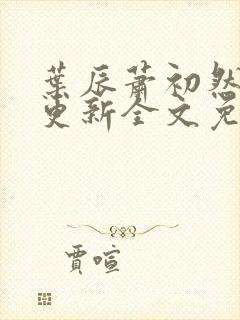 葉辰蕭初然
更新全文免
賈喧